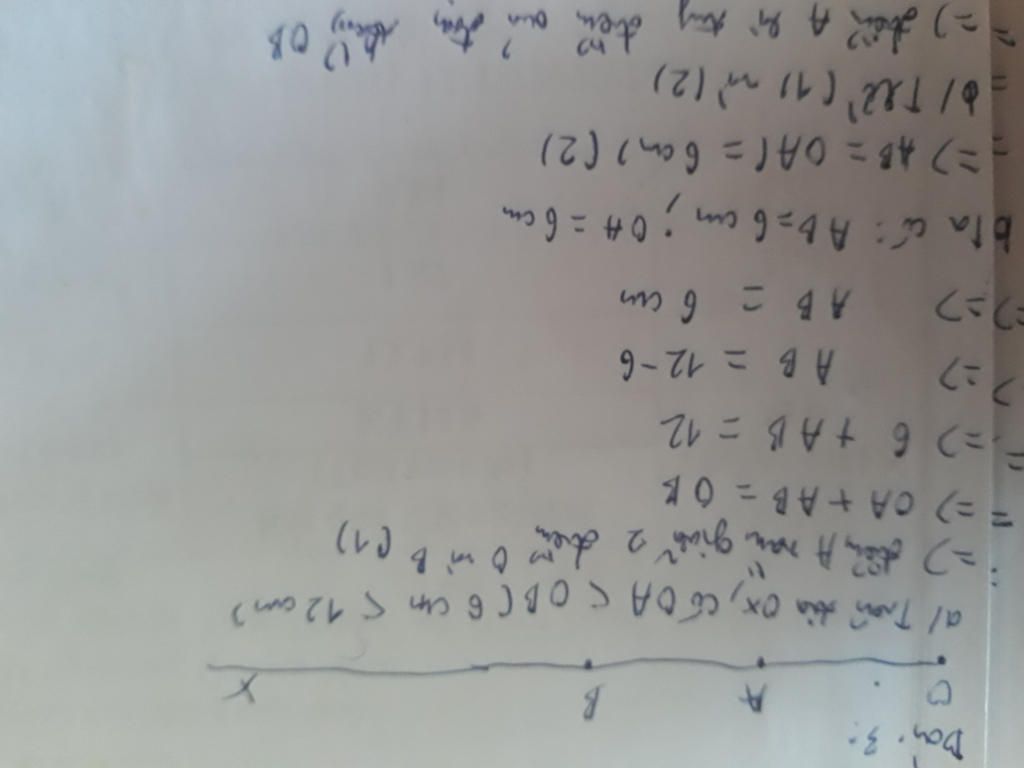 Bài 3:
O A B x
a/ Trên tia Ox, có OA < OB (6 cm < 12 cm)
=> điểm A nằm giữa 2 điểm O và B (1)
=> OA + AB = OB
=> 6 + AB = 12
=> AB = 12 - 6
=> AB = 6 cm
b/ Ta có: AB = 6 cm ; OA = 6 cm
=> AB = OA (= 6 cm) (2)
Từ (1) và (2)
=> điểm A là trung điểm của đoạn thẳng OB